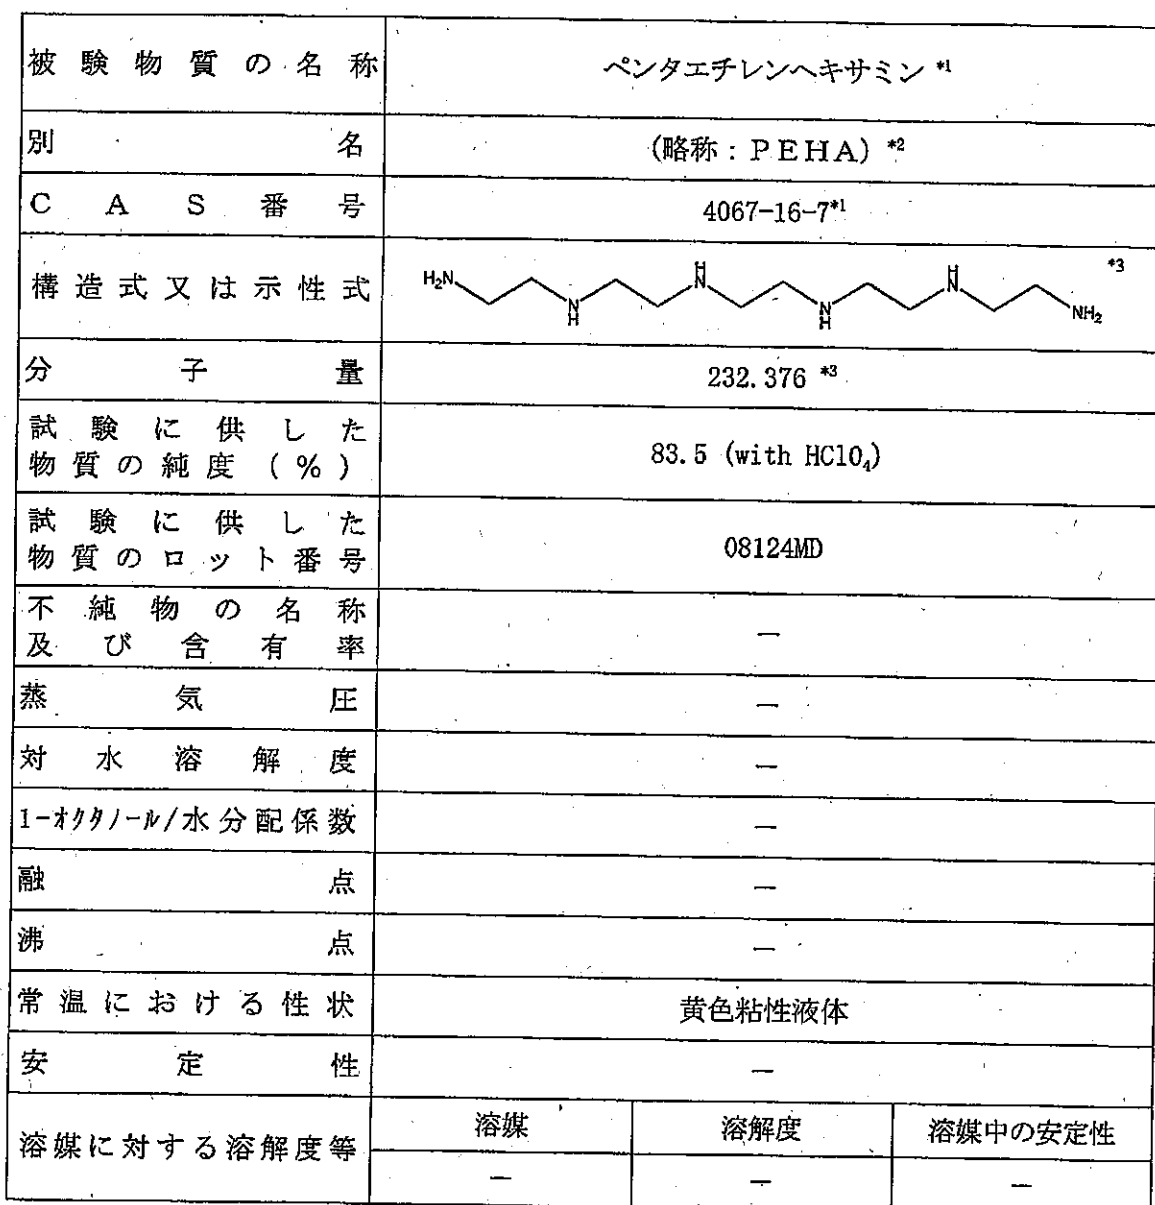 被験物質の名称
ペンタエチレンヘキサミン *1
別名
(略称:PEHA) *2
CAS番号
4067-16-7*1
構造式又は示性式
H2N
N
H
H
N
N
H
H
N
NH2
*3
分子量
232.376 *3
試験に供した
物質の純度(%)
83.5 (with HClO4)
試験に供した
物質のロット番号
08124MD
不純物の名称
及び含有率
—
蒸気圧
—
対水溶解度
—
1-オクタノール/水分配係数
—
融点
—
沸点
—
常温における性状
黄色粘性液体
安定性
—
溶媒に対する溶解度等
溶媒
溶解度
溶媒中の安定性
—
—
—